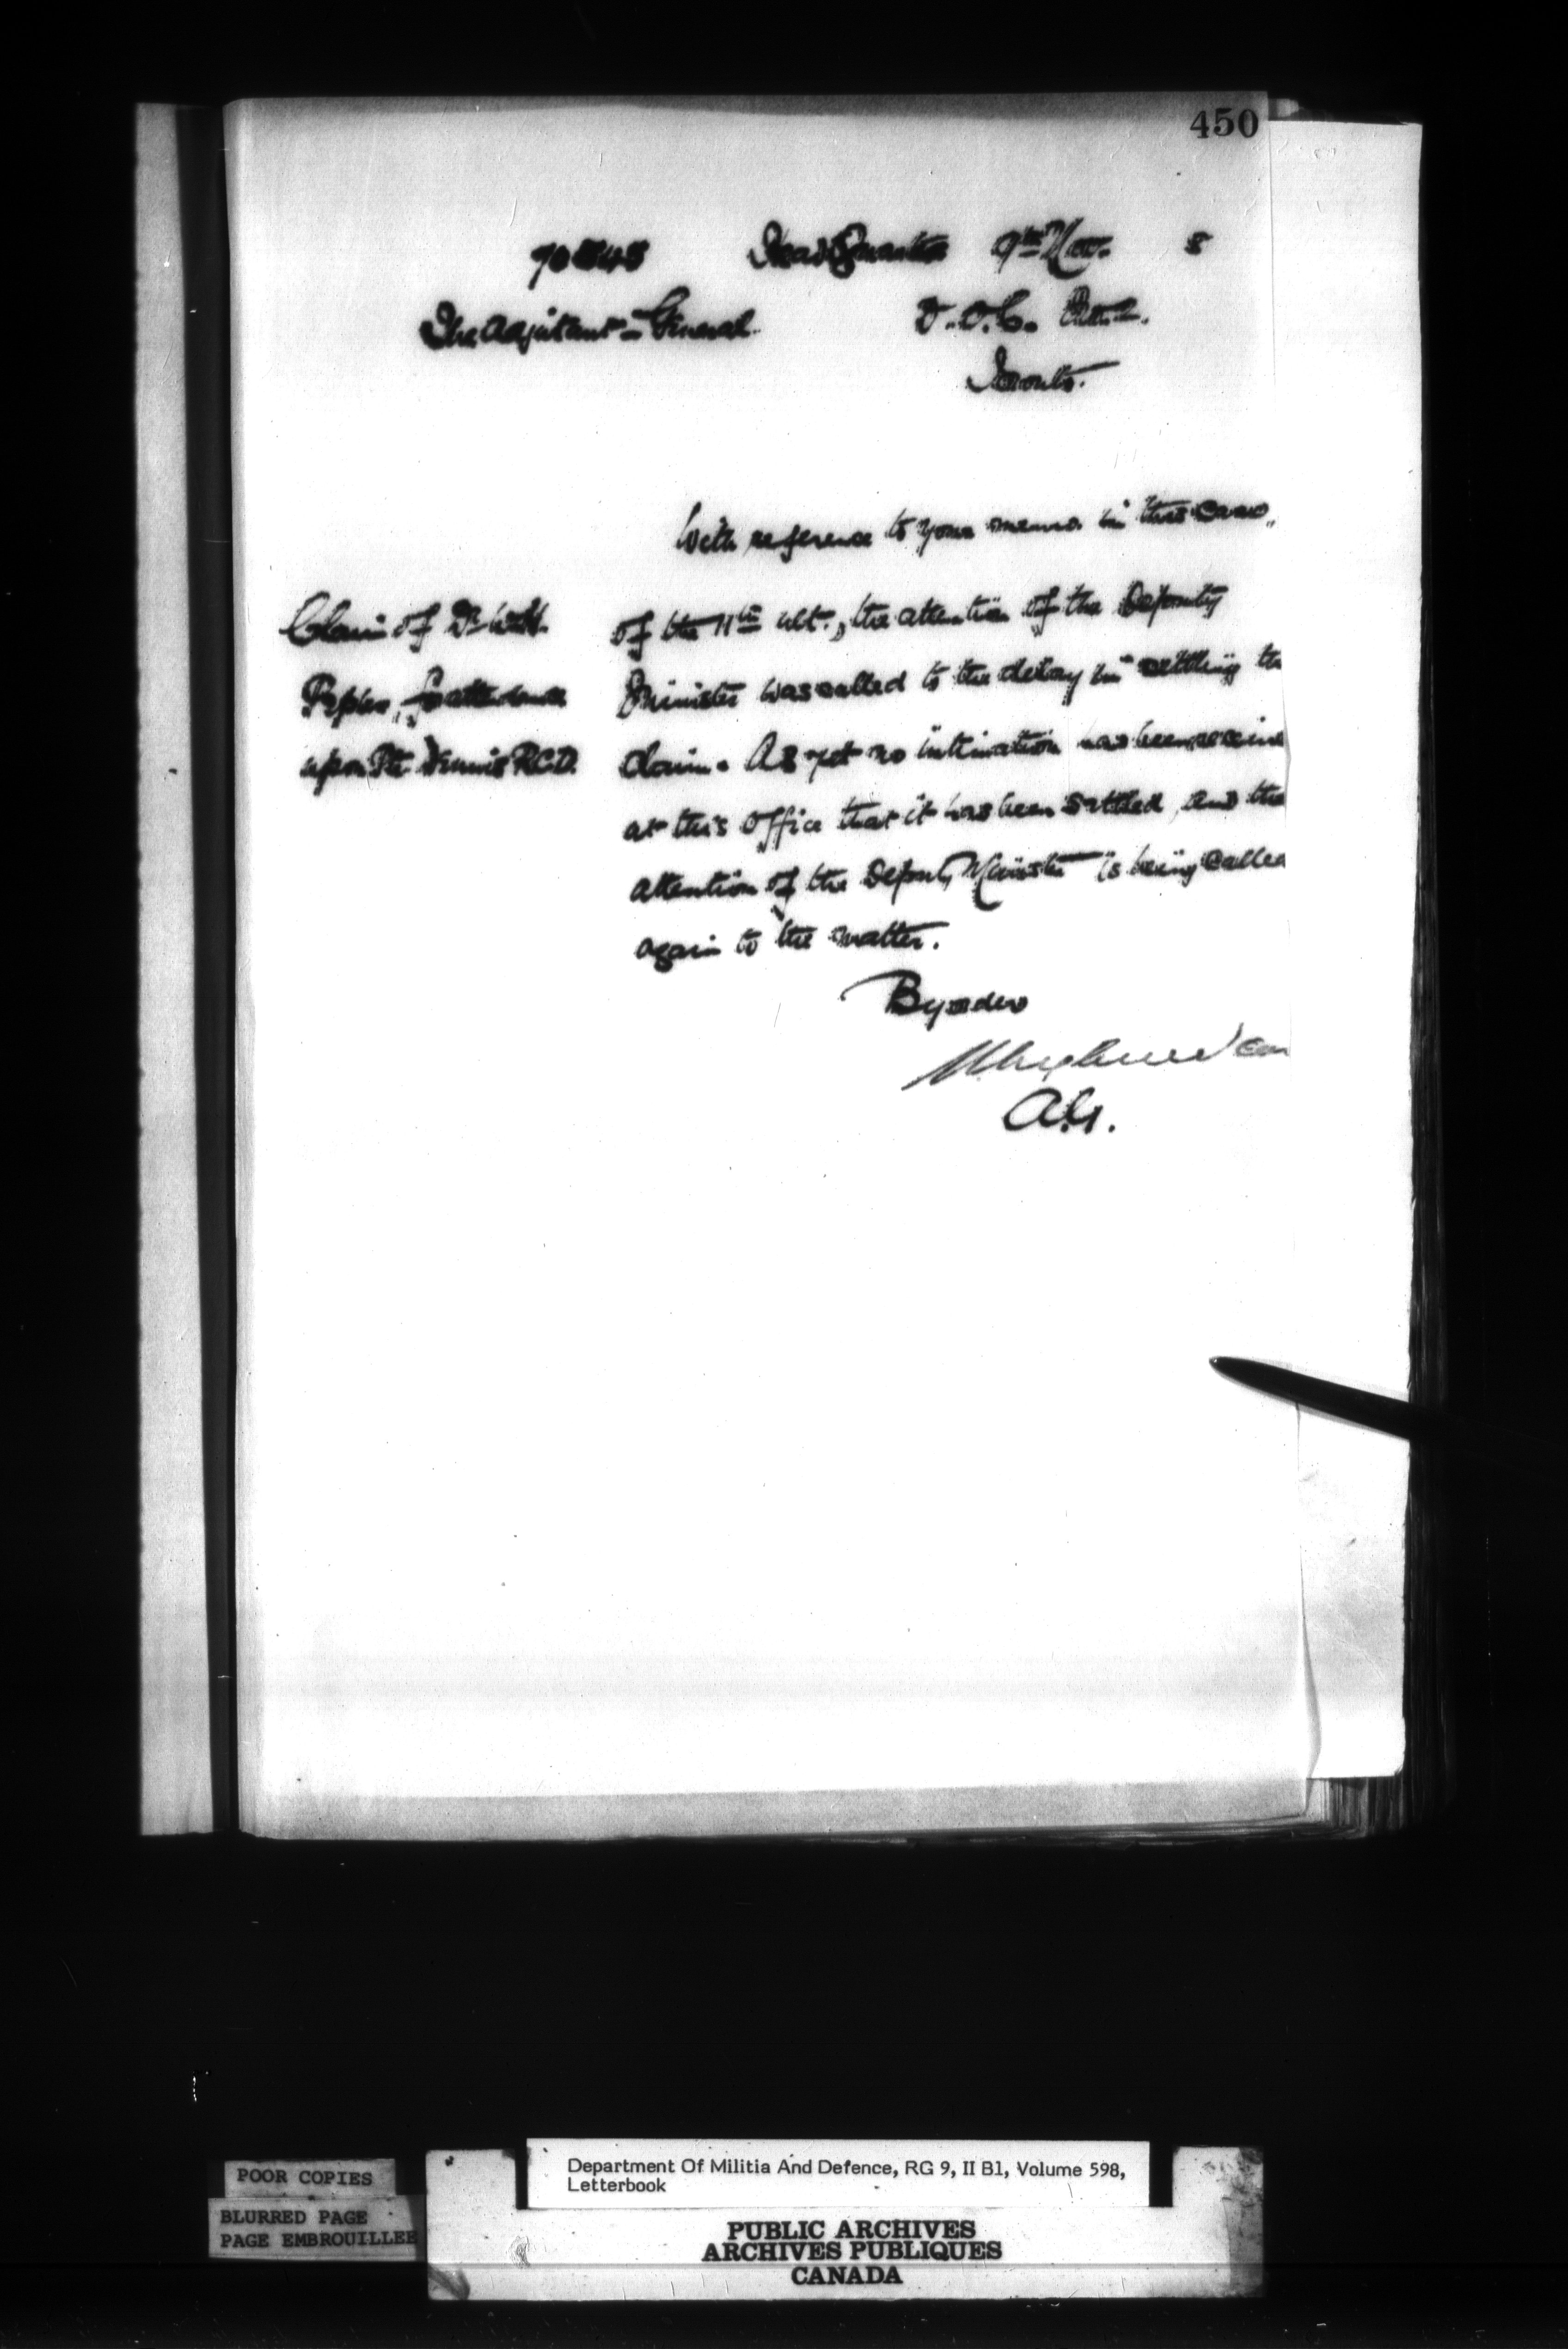 450
70545 Head Quarters 9th Nov. 8
The Adjutant-General D.O.C.
Toronto.
With reference to your memo. in this case,
Claim of Dr W.H.
Pepler, for attendance
upon Pte Dennis R.C.D.
of the 11th ult., the attention of the Deputy
Minister was called to the delay in settling the
claim. As yet no intimation has been receive
at this office that it has been settled, and the
attention of the Deputy Minister is being called
again to the matter.
By order
A.G.
POOR COPIES
BLURRED PAGE
PAGE EMBROUILLEE
Department Of Militia And Defence, RG 9, II B1, Volume 598,
Letterbook
PUBLIC ARCHIVES
ARCHIVES PUBLIQUES
CANADA